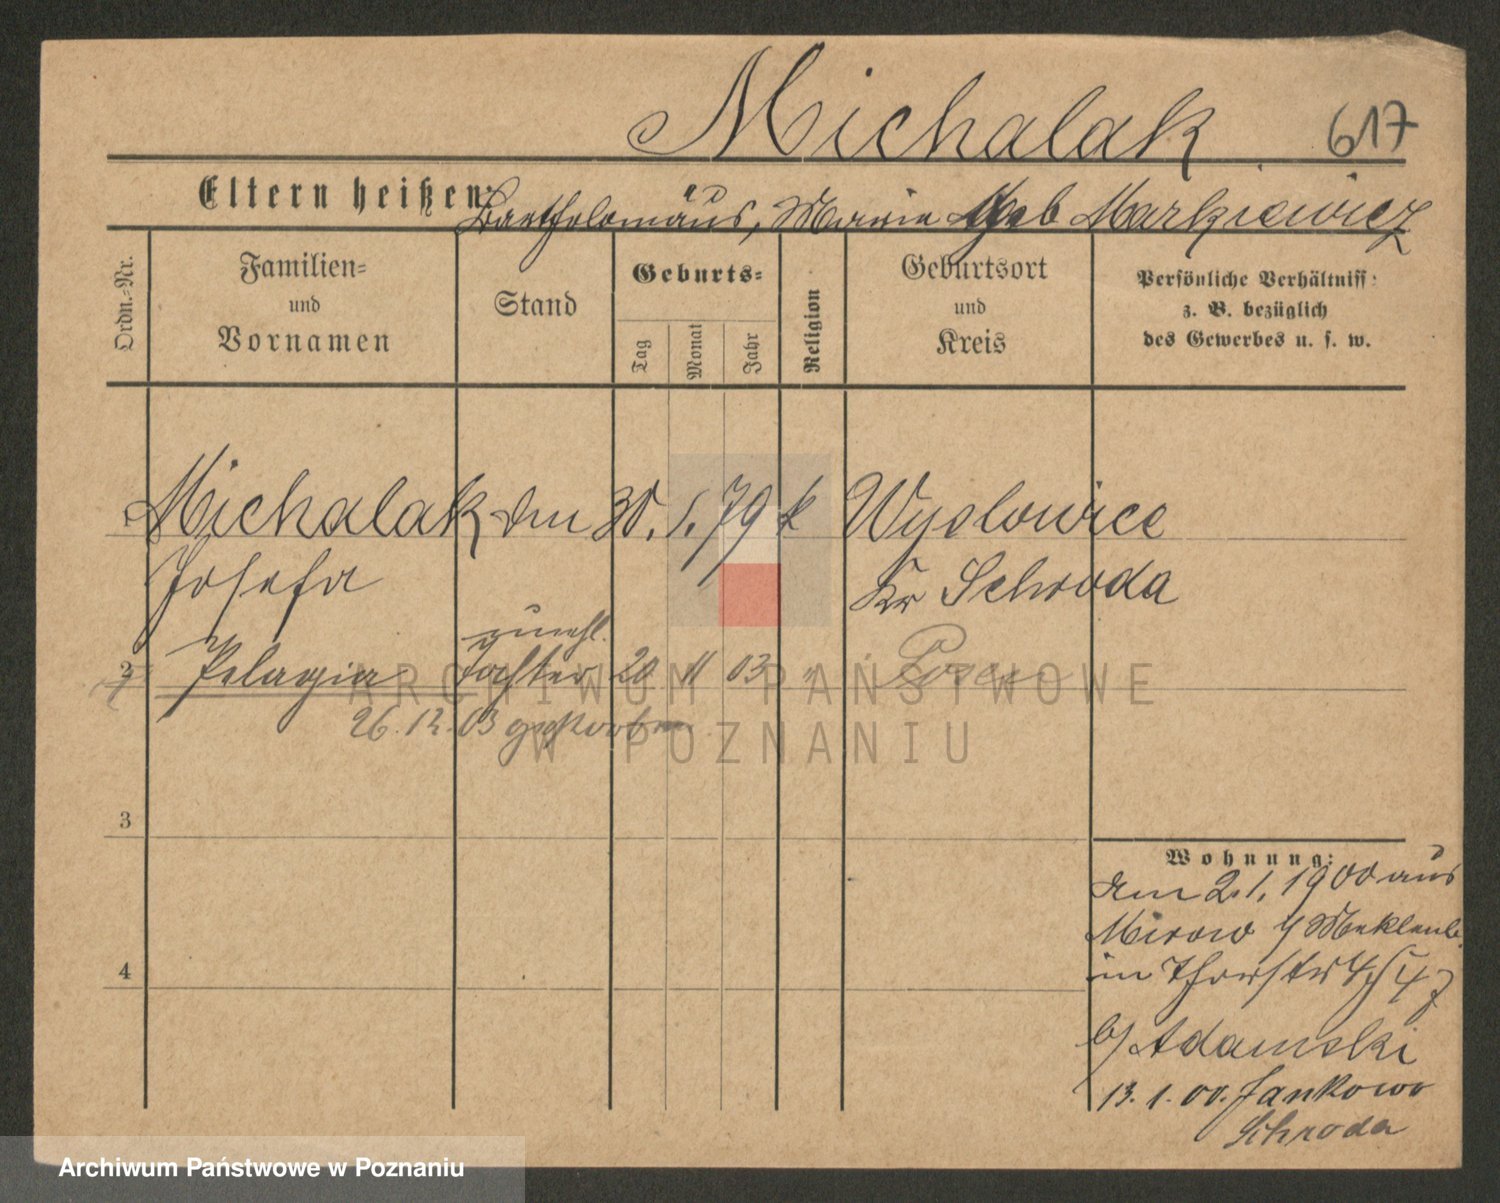 Michalak 617
Eltern heißen: Bartholomäus, Marie geb Markiewicz
Ordn.=Nr.
Familien=
und
Vornamen
Stand
Geburts=
Tag
Monat
Jahr
Religion
Geburtsort
und
Kreis
Persönliche Verhältniss:
z. B. bezüglich
des Gewerbes u. s. w.
1 Michalak 30. 1. 79 k Wyslowice
Josefa Kr Schroda
unehl.
2 Pelagia Tochter 20 11 03 " Posen
26.12.03 gestorben
3
4
Wohnung:
Am 2.1.1900 aus
Mirow Meklenb.
in
b/ Adamski
13.1.00. Jankowo
Schroda
ARCHIWUM PAŃSTWOWE
W POZNANIU
Archiwum Państwowe w Poznaniu